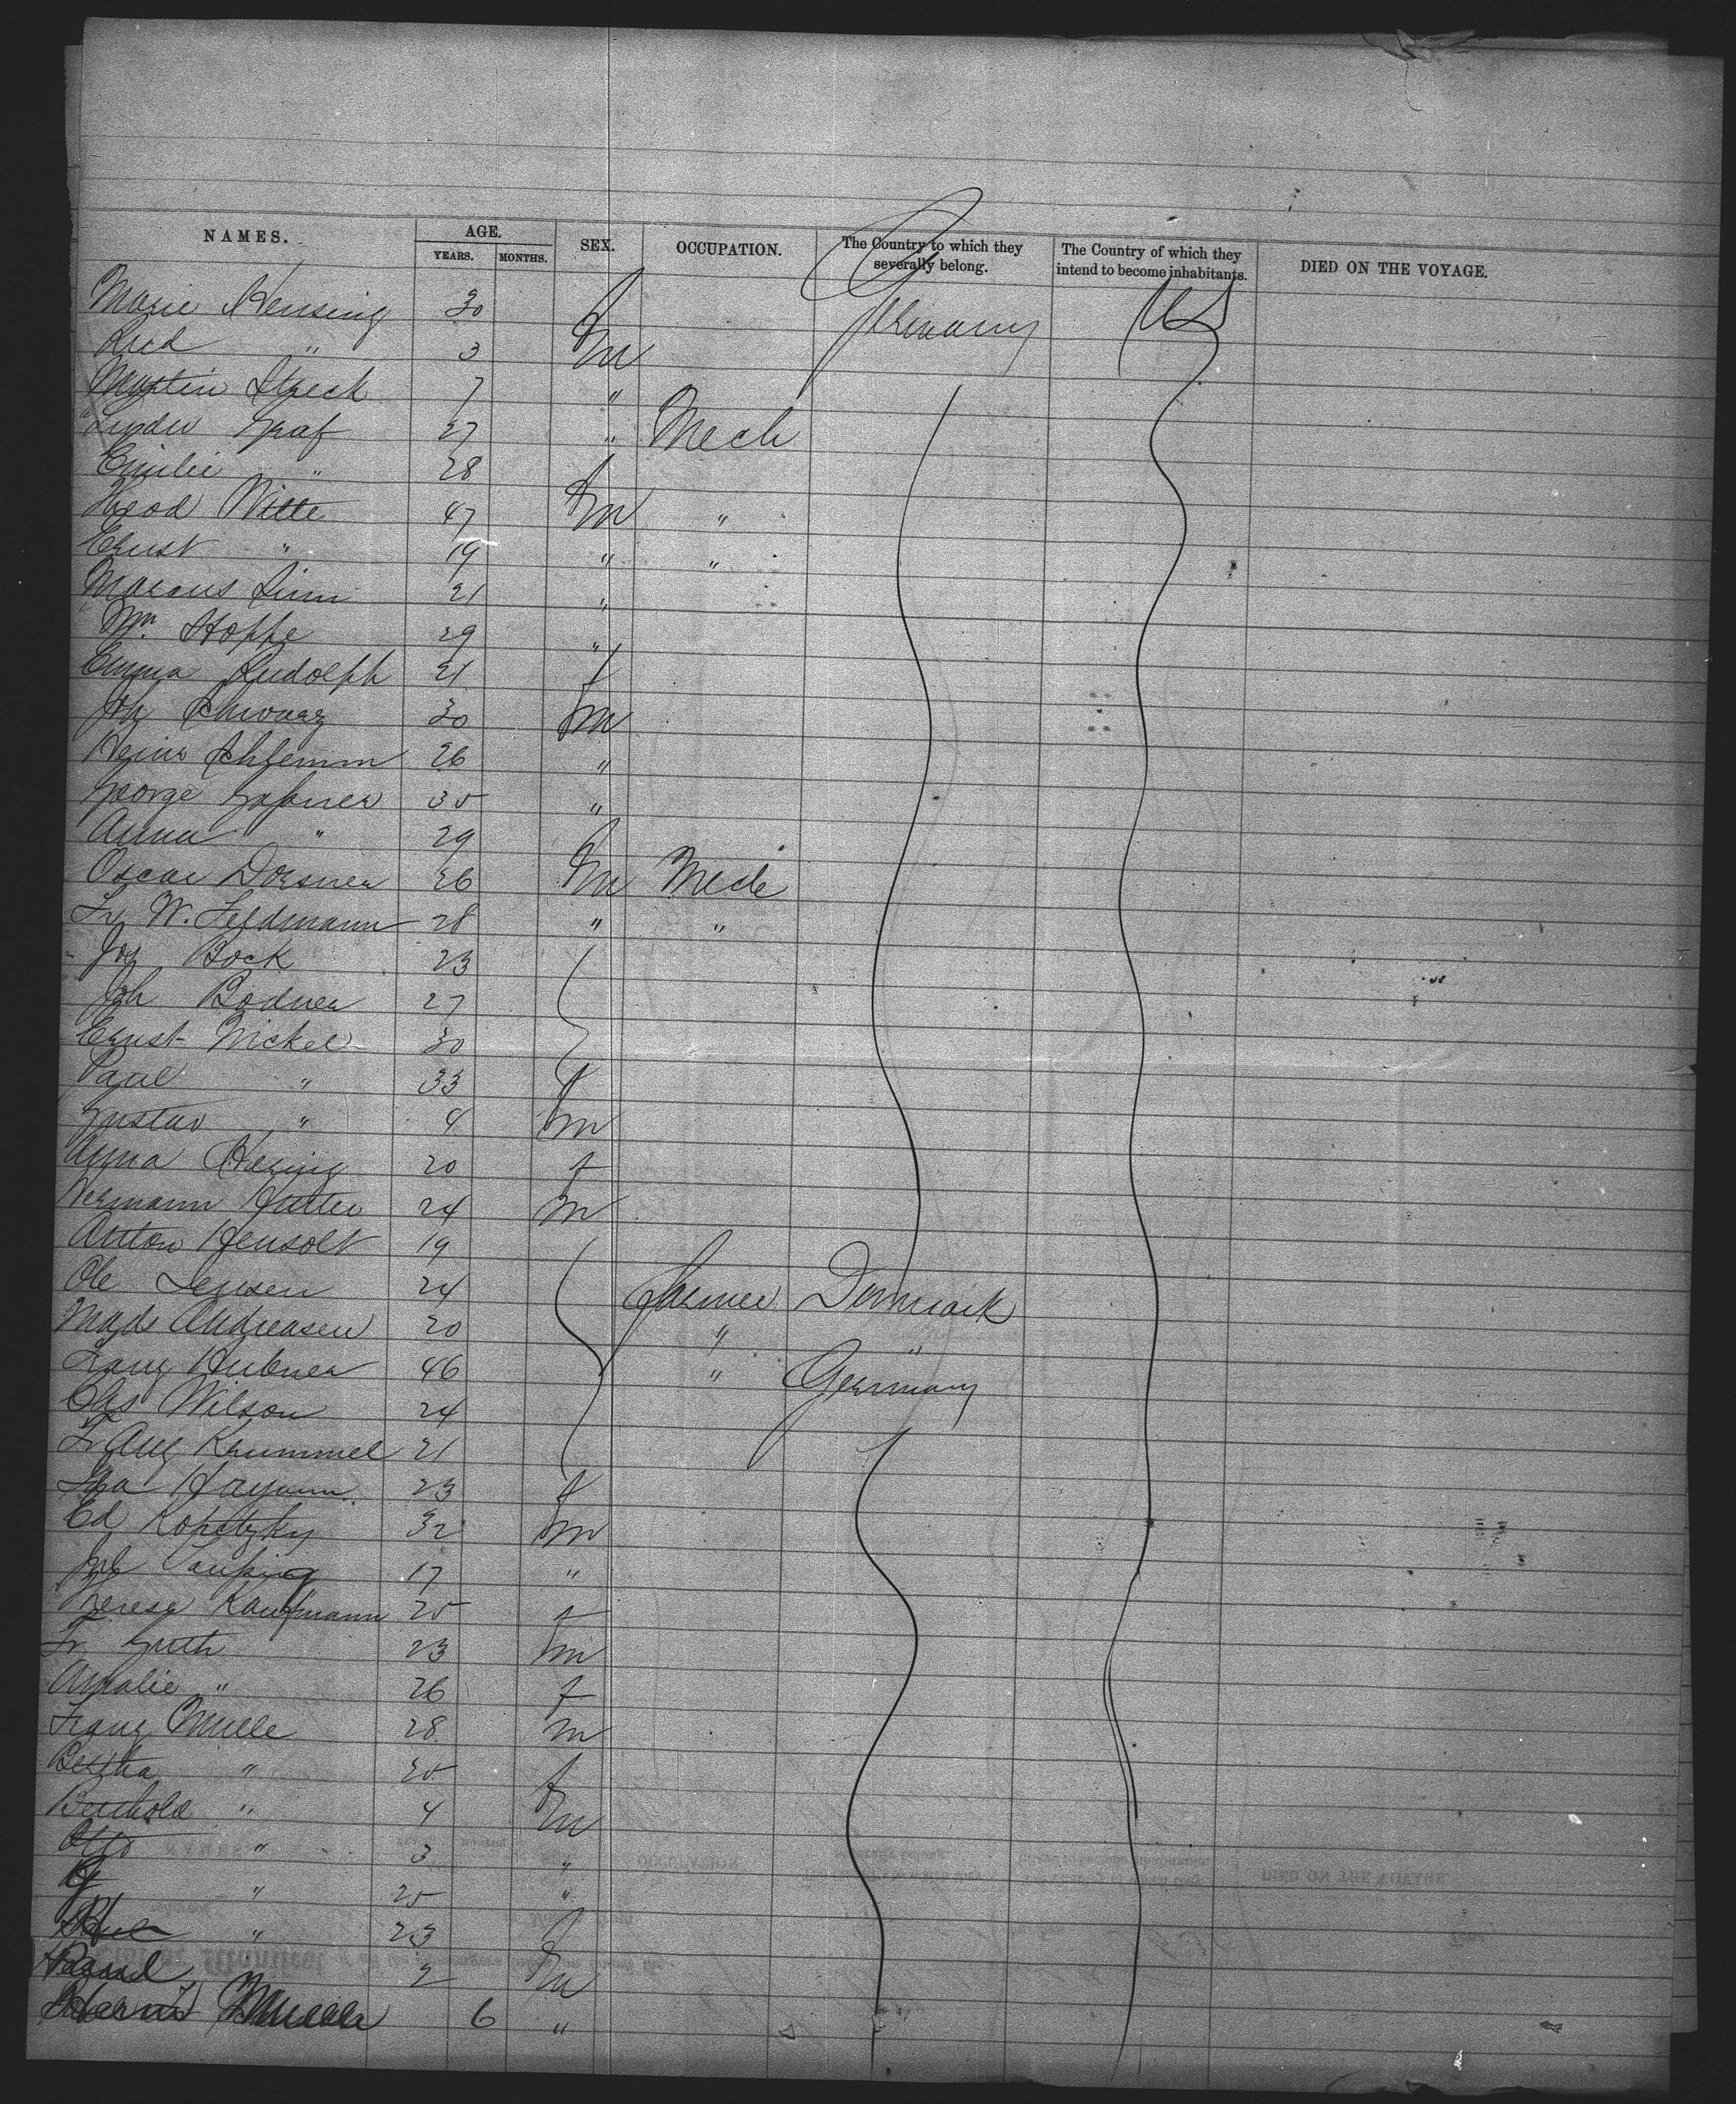 NAMES. AGE. SEX. OCCUPATION. The Country to which they severally belong. The Country of which they intend to become inhabitants. DIED ON THE VOYAGE.
YEARS. MONTHS.
Marie Hensing 30 f Germany US
Rud " 3 m
Martin Streck 7 "
Graf 27 " Mech
Emilie " 28 f
Witte 47 m "
Ernst " 19 " "
Marcus Sinn 21 "
Wm. Hoppe 29 "
Emma Rudolph 21 f
Joh Schwarz 30 m
Heinr Schlemm 26 "
George 35 "
Anna " 29 f
Oscar Dorsner 26 m Mech
Fr W. Feldmann 28 " "
Jos Bock 23
Joh Bodner 27
Ernst Nickel 30
" 33 f
Gustav " 4 m
Anna Hering 20 f
Hermann 24 m
Anton Hensolt 19
Ole Jensen 24 Farmer Denmark
Mads Andreasen 20 " "
Franz Hubner 46 " Germany
Chs Wilson 24
Fr Aug Krummel 21
23 f
Ed Kopetzky 32 m
Joh 17 "
Therese Kaufmann 25 f
Fr Guth 23 m
Amalie " 26 f
Franz Mulle 28 m
Bertha " 25 f
Berthold " 4 m
Otto " 3 "
" 25 "
" 23 f
2 m
6 "